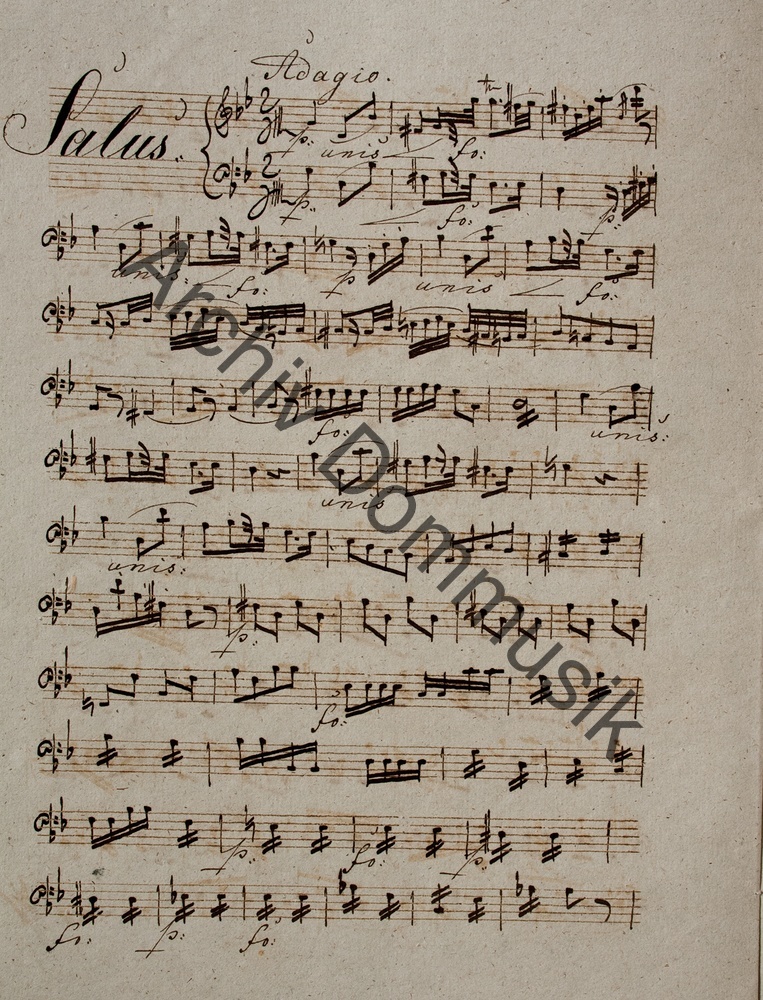 Adagio.
Salus.
2
p: unis fo:
2
p: fo: p:
unis: fo: p unis fo:
fo: unis:
unis
unis:
p:
fo:
p: fo: p:
fo: p: fo:
Archiv Dommusik